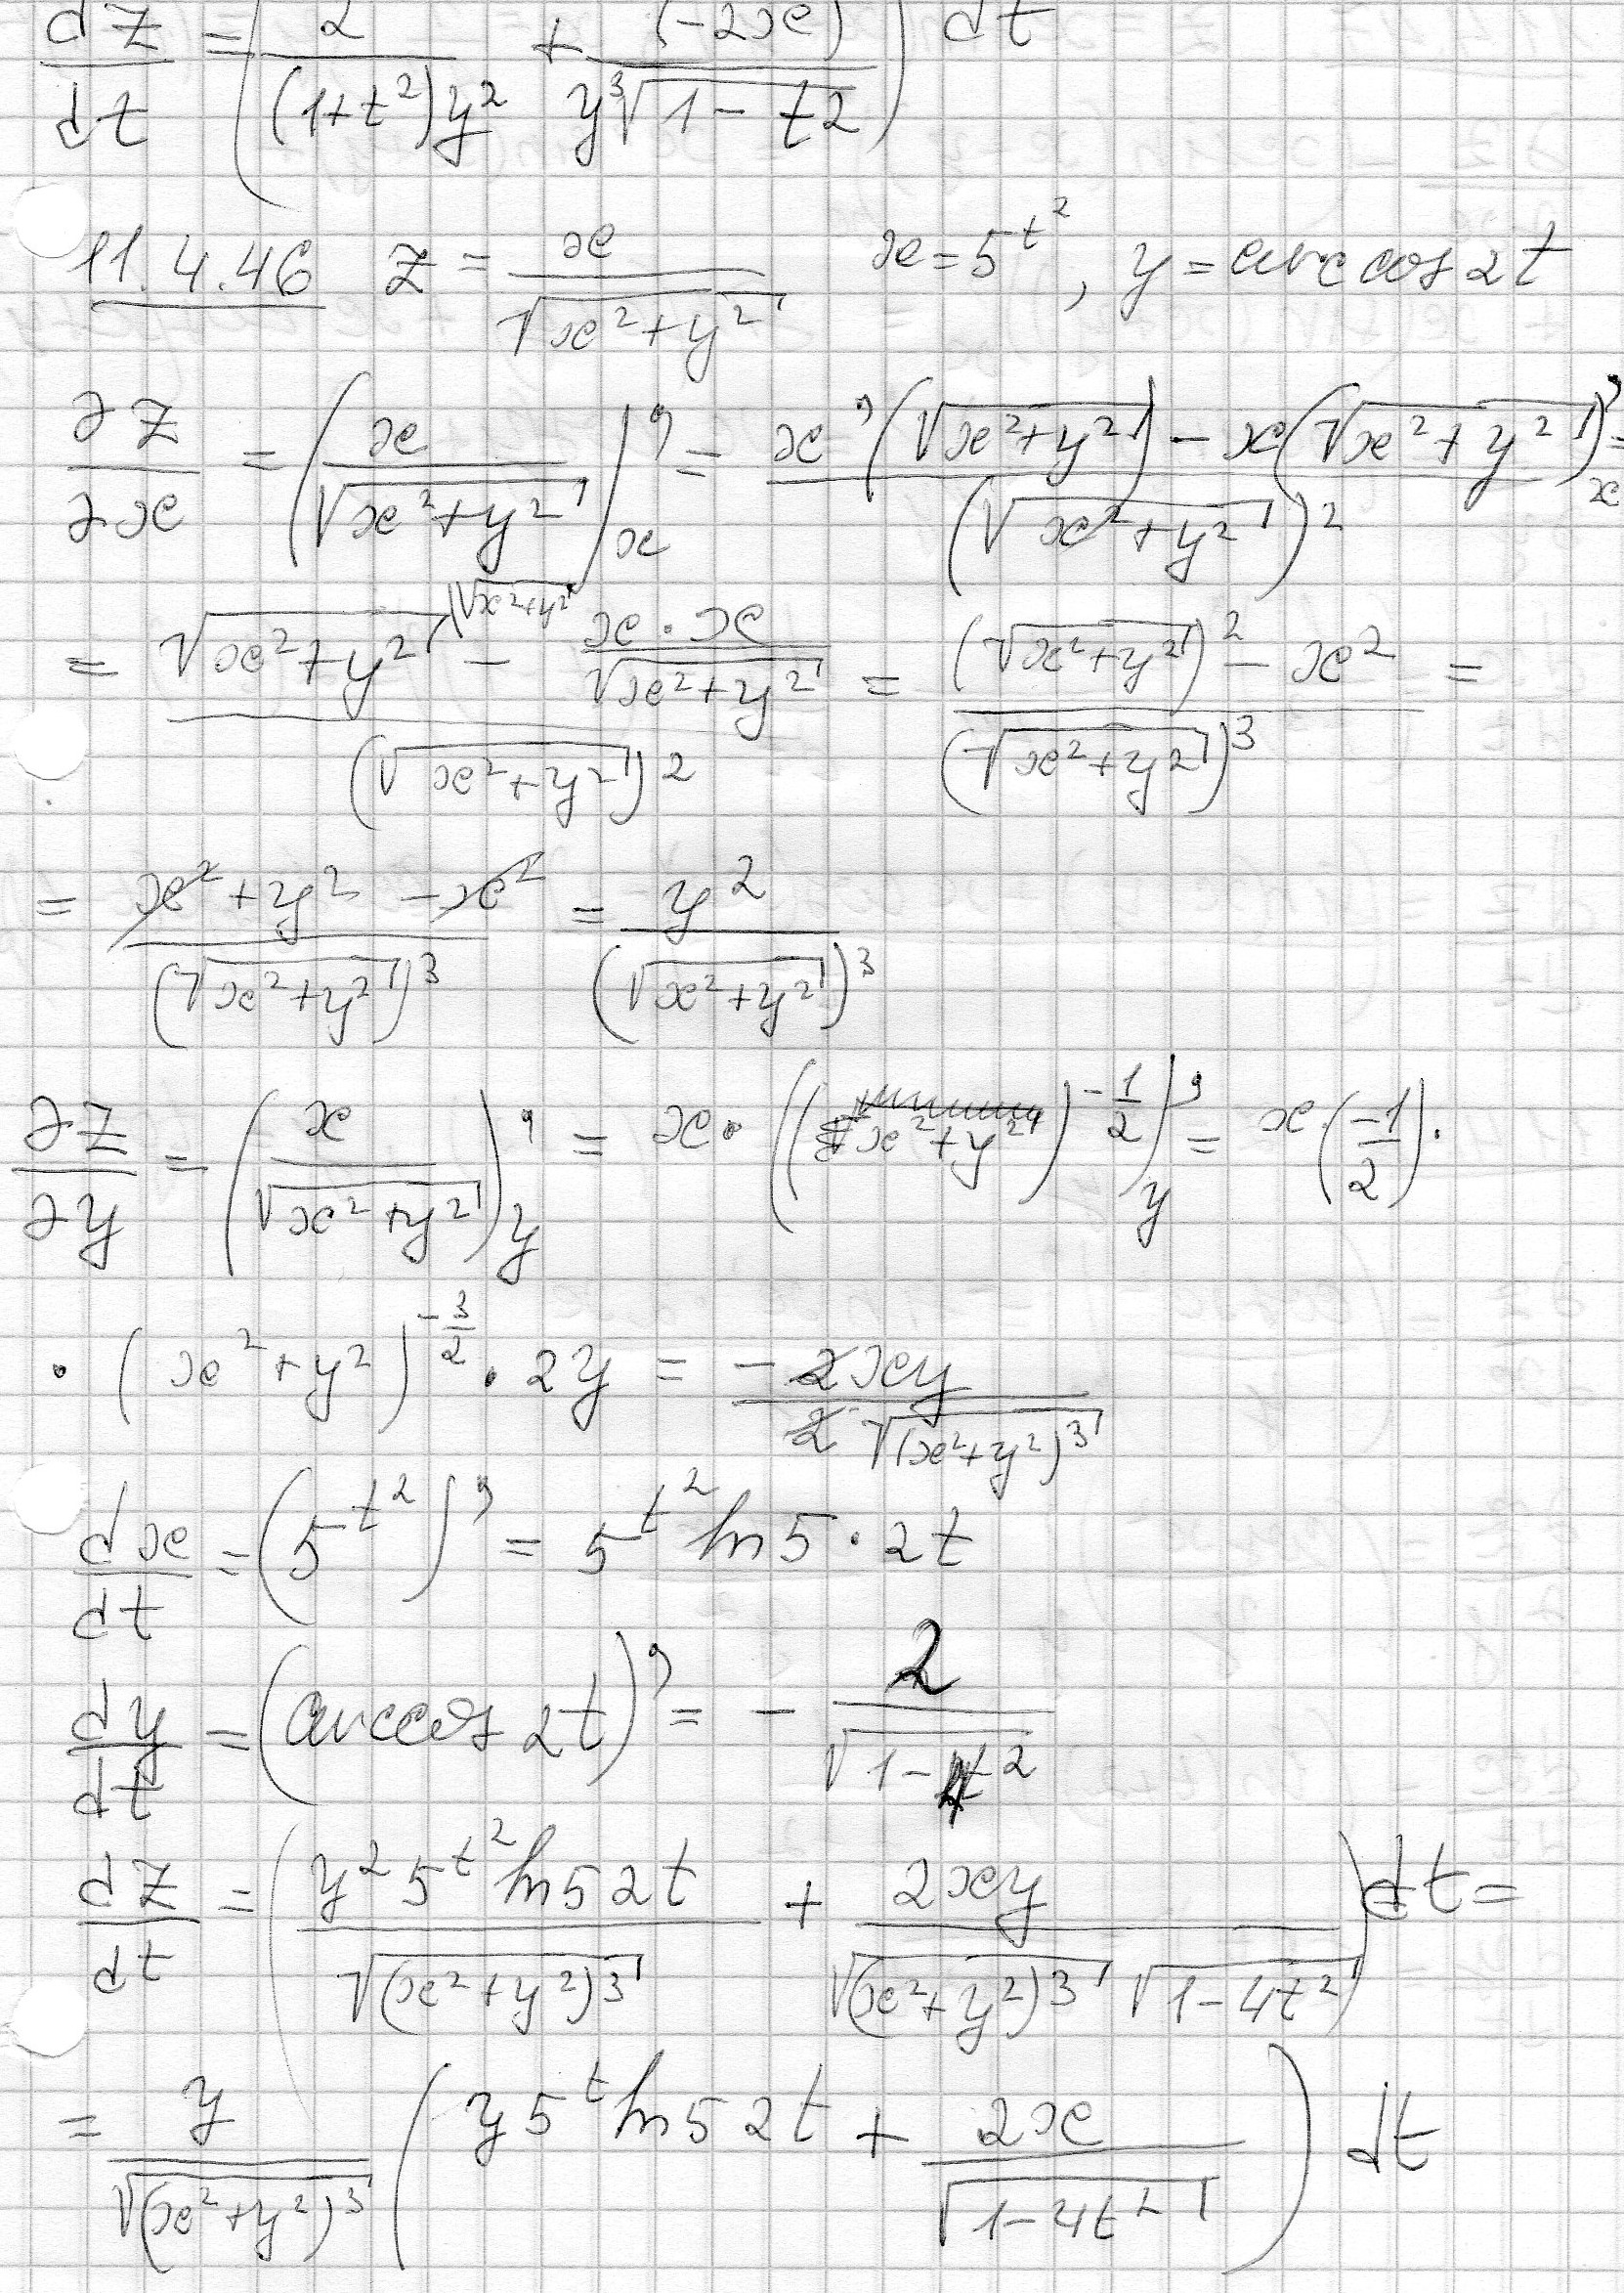 dz/dt = (2/((1+t²)y²) + (-2x)/(y³√(1-t2))) dt
11.4.46 z = x/√(x²+y²) x = 5^(t²), y = arccos 2t
∂z/∂x = (x/√(x²+y²))'ₓ = (x'(√(x²+y²)) - x(√(x²+y²))'ₓ)/(√(x²+y²))² =
= (√(x²+y²)^(\√(x²+y²)) - (x·x)/√(x²+y²))/(√(x²+y²))² = ((√(x²+y²))² - x²)/(√(x²+y²))³ =
= (x²+y² - x²)/(√(x²+y²))³ = y²/(√(x²+y²))³
∂z/∂y = (x/√(x²+y²))'_y = x·((x²+y²)^(-1/2))'_y = x·(-1/2)·
· (x²+y²)^(-3/2) · 2y = -2xy/(2√((x²+y²)³))
dx/dt = (5^(t²))' = 5^(t²) ln5 · 2t
dy/dt = (arccos 2t)' = - 2/√(1-4t²)
dz/dt = (y² 5^(t²) ln5 2t/√((x²+y²)³) + 2xy/(√((x²+y²)³) √(1-4t²))) dt =
= y/√((x²+y²)³) (y 5^t ln5 2t + 2x/√(1-4t²)) dt